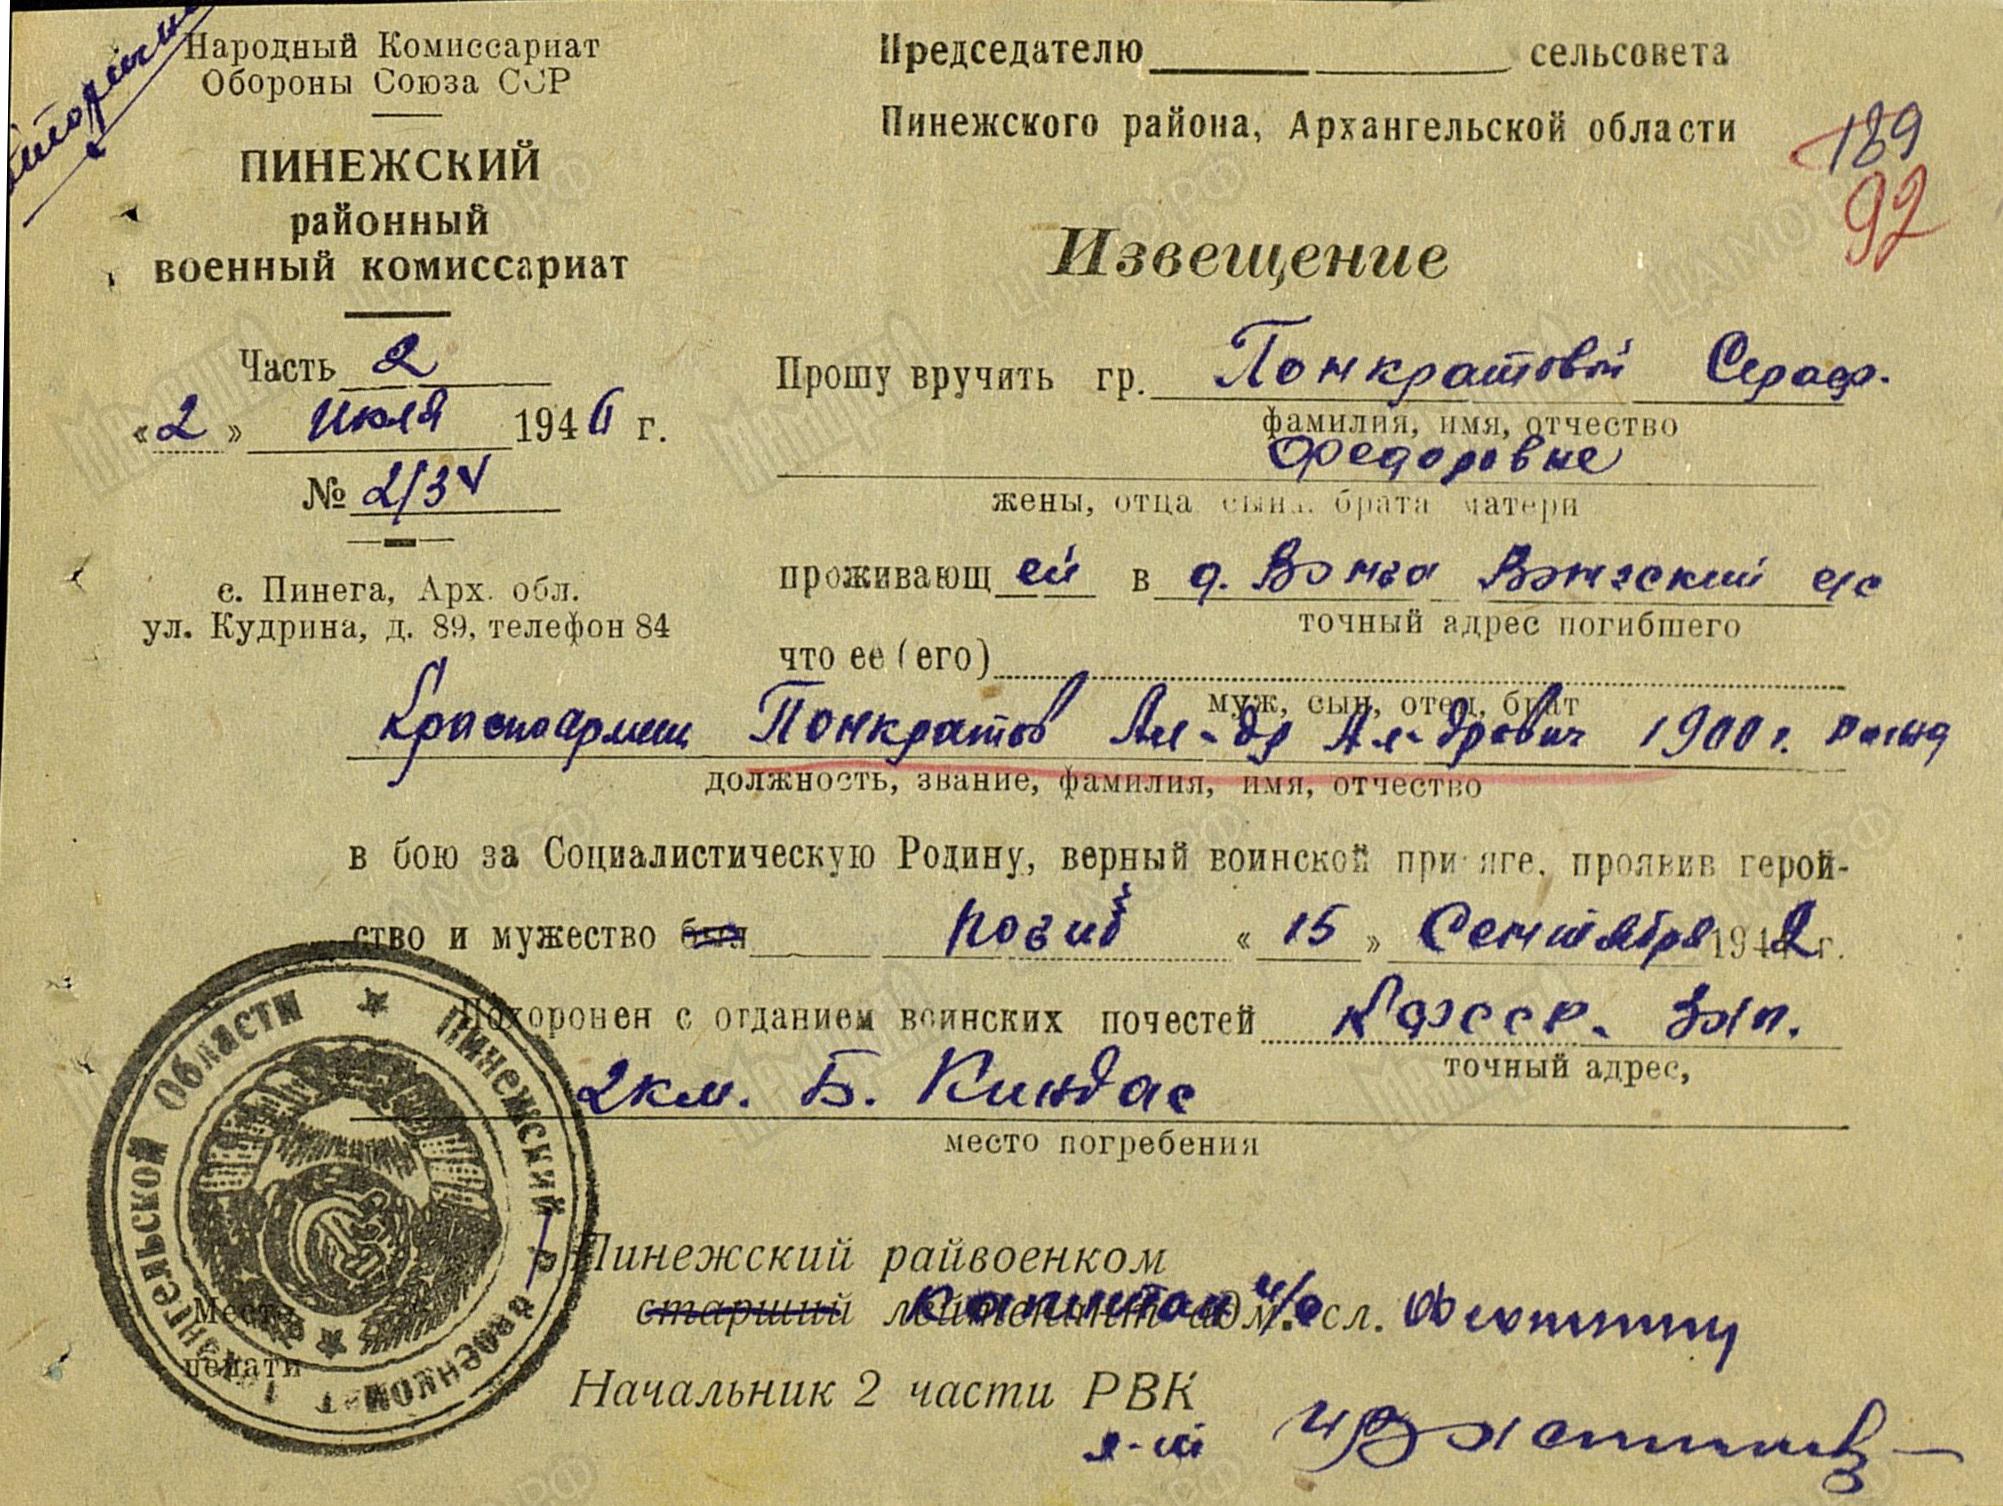 Народный Комиссариат
Обороны Союза ССР
ПИНЕЖСКИЙ
районный
военный комиссариат
Часть 2
«2» июля 1946 г.
№ 2/34
с. Пинега, Арх. обл.
ул. Кудрина, д. 89, телефон 84
Председателю сельсовета
Пинежского района, Архангельской области
189
92
Извещение
Прошу вручить гр. Понкратовой Сераф.
фамилия, имя, отчество
Федоровне
жены, отца сына, брата матери
проживающ ей в д. Вонга Вонгский с/с
точный адрес погибшего
что ее (его)
муж, сын, отец, брат
Красноармеец Понкратов Ал-др Ал-дрович 1900 г. рожд
должность, звание, фамилия, имя, отчество
в бою за Социалистическую Родину, верный воинской присяге, проявив герой-
ство и мужество был погиб «15» сентября 1942 г.
Похоронен с отданием воинских почестей КФССР. Зап.
точный адрес,
2км. Б. Киндас
место погребения
Пинежский райвоенком
старший лейтенант капитан адм. сл.
Начальник 2 части РВК
Место
печати
Пинежский военкомат Архангельской области
ЦАМО РФ